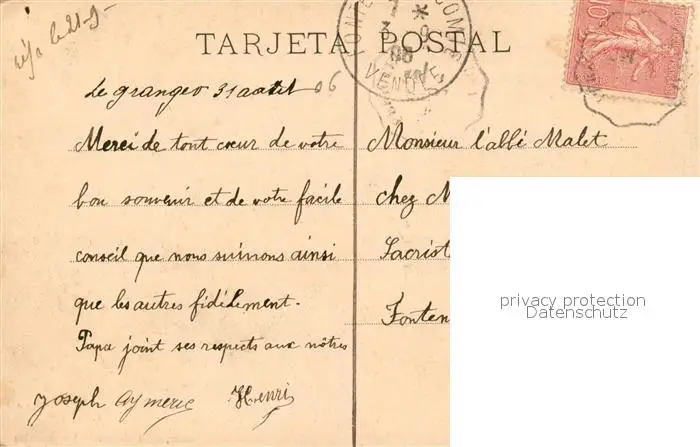 rép le 21-9-
TARJETA POSTAL
Le granger 31 aout 06
Merci de tout cœur de votre
bon souvenir et de votre facile
conseil que nous suivrons ainsi
que les autres fidèlement.
Papa joint ses respects aux nôtres
Joseph Aymeric Henri
Monsieur l'abbé Malet
chez M
Sacrist
Fonten
privacy protection
Datenschutz
10
VENDÉE